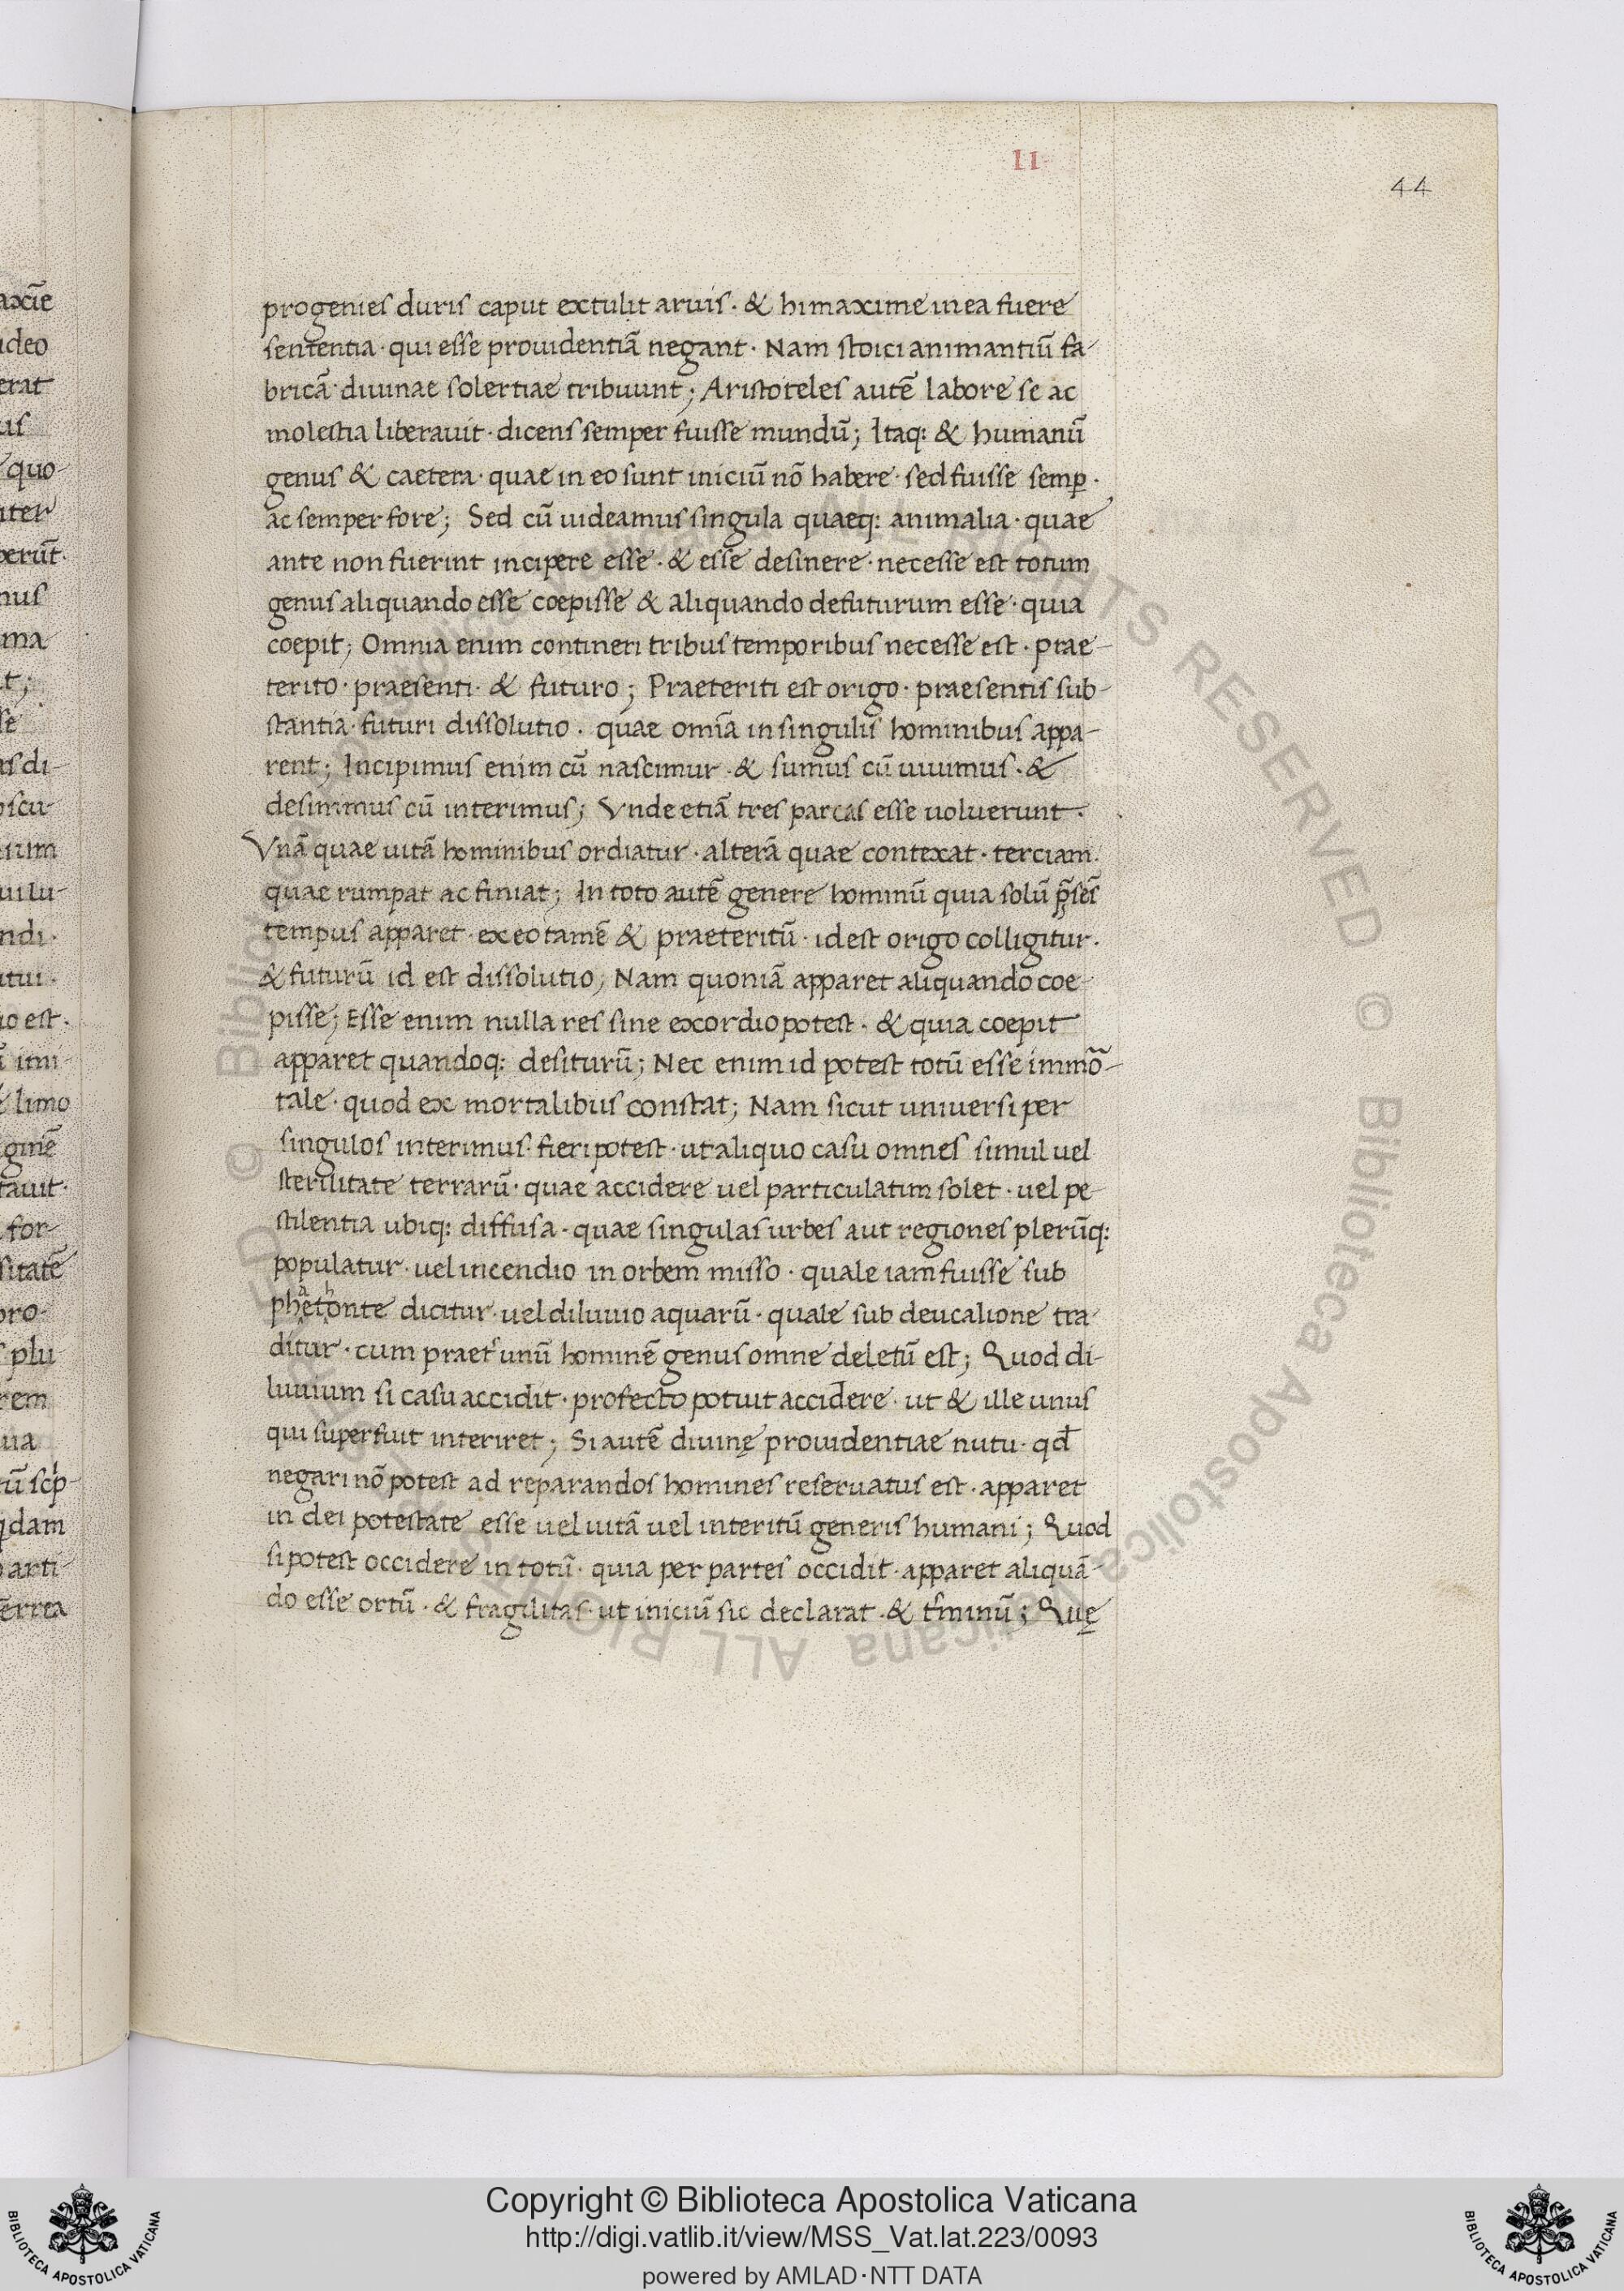 II
44
progenies duris caput extulit aruis · & hi maxime in ea fuere
sententia · qui esse prouidentiā negant · Nam stoici animantiū fa-
bricā diuinae solertiae tribuunt ; Aristoteles autē labore se ac
molestia liberauit · dicens semper fuisse mundū ; Itaq: & humanū
genus & caetera · quae in eo sunt iniciū nō habere · sed fuisse semꝑ ·
ac semper fore ; Sed cū uideamus singula quaeq: animalia · quae
ante non fuerint incipere esse · & esse desinere · necesse est totum
genus aliquando esse coepisse & aliquando defuturum esse · quia
coepit ; Omnia enim contineri tribus temporibus necesse est · prae-
terito · praesenti · & futuro ; Praeteriti est origo · praesentis sub-
stantia · futuri dissolutio · quae omīa in singulis hominibus appa-
rent ; Incipimus enim cū nascimur · & sumus cū uiuimus · &
desinimus cū interimus ; Vnde etiā tres parcas esse uoluerunt ·
Vnā quae uitā hominibus ordiatur · alterā quae contexat · terciam ·
quae rumpat ac finiat ; In toto autē genere hominū quia solū p̄sēs
tempus apparet · ex eo tamē & praeteritū · id est origo colligitur ·
& futurū id est dissolutio ; Nam quoniā apparet aliquando coe-
pisse ; Esse enim nulla res sine exordio potest · & quia coepit
apparet quandoq: desiturū ; Nec enim id potest totū esse immō-
tale · quod ex mortalibus constat ; Nam sicut uniuersi per
singulos interimus · fieri potest · ut aliquo casu omnes simul uel
sterilitate terrarū · quae accidere uel particulatim solet · uel pe-
stilentia ubiq: diffusa · quae singulas urbes aut regiones plerūq:
populatur · uel incendio in orbem misso · quale iam fuisse sub
phaethonte dicitur · uel diluuio aquarū · quale sub deucalione tra-
ditur · cum praet' unū hominē genus omne deletū est ; Quod di-
luuium si casu accidit · profecto potuit accidere · ut & ille unus
qui superfuit interiret ; Si autē diuinę prouidentiae nutu · qd̄
negari nō potest ad reparandos homines reseruatus est · apparet
in dei potestate esse uel uitā uel interitū generis humani ; Quod
si potest occidere in totū · quia per partes occidit · apparet aliquā-
do esse ortū · & fragilitas · ut iniciū sic declarat · & t'minū ; Quę
Copyright © Biblioteca Apostolica Vaticana
http://digi.vatlib.it/view/MSS_Vat.lat.223/0093
powered by AMLAD·NTT DATA